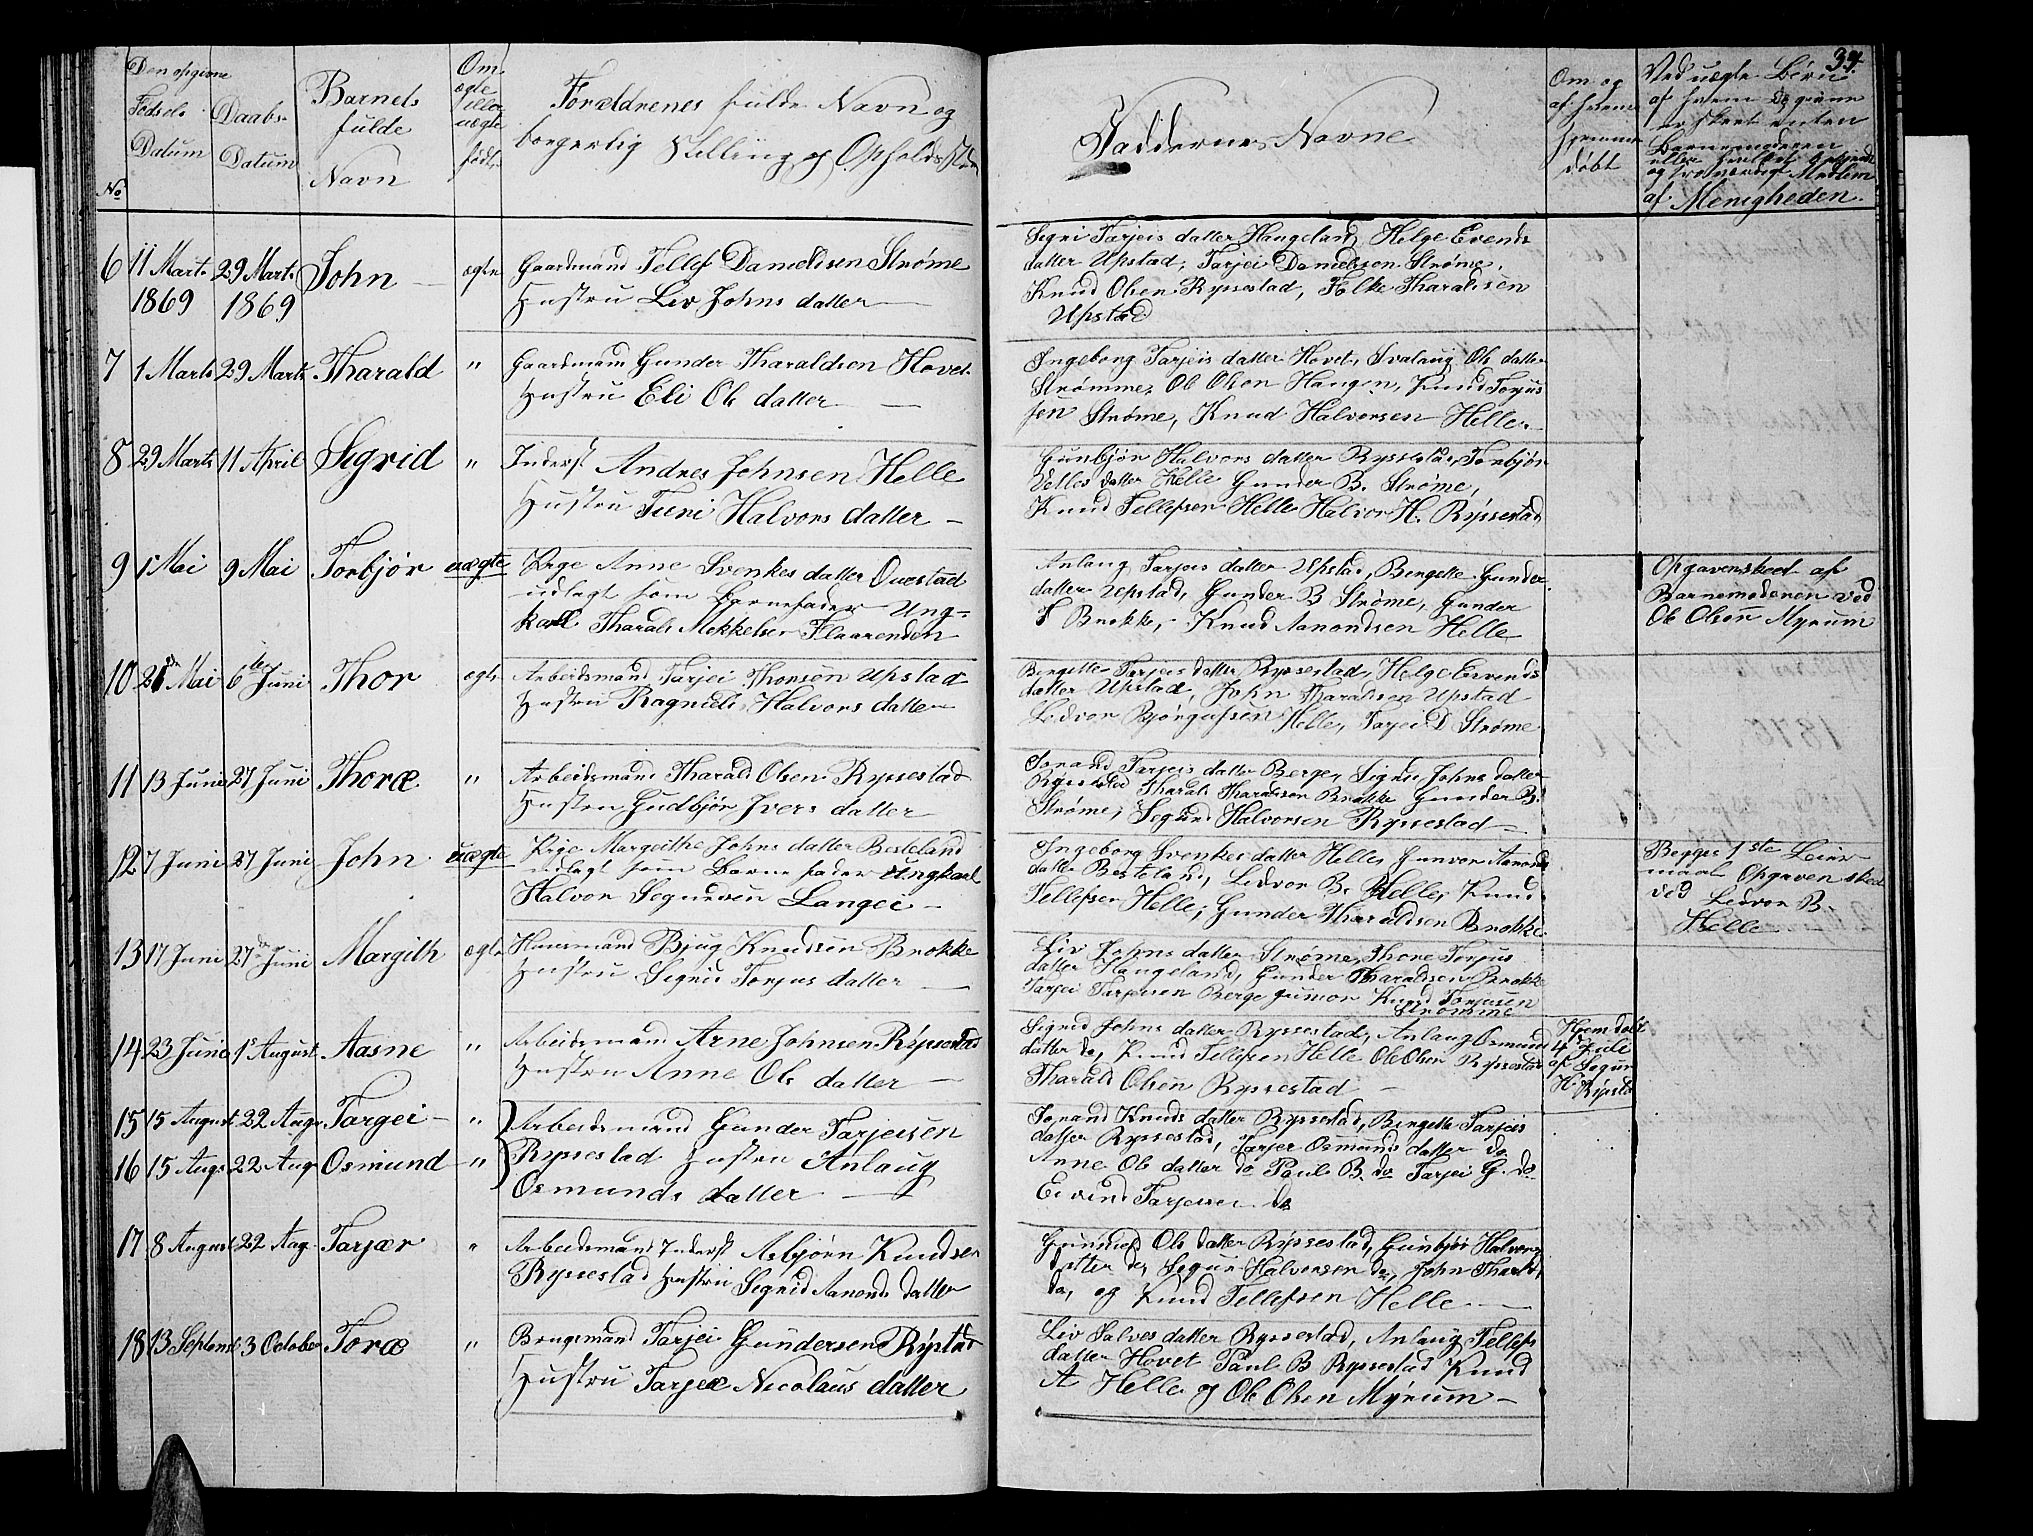 34.
Den opgivne Fødsels Datum
Daabs Datum
Barnets fulde Navn
Om ægte eller uægte født
Forældrenes fulde Navn og
borgerlig Stilling og Opholdssted
Faddernes Navne
Om og af hvem hjemmedøbt
Ved uægte Børn
af hvem Opgivne
er skeet enten
Barnemoderen
eller
og troværdigt Medlem
af Menigheden.
No
6 11 Marts 29 Marts John ægte Gaardmand Tellef Danielsen Strøme
1869 1869 Hustru Liv Johns datter
Sigri Tarjeis datter Haugeland, Helge Evends
datter Upstad, Tarjei Danielsen Strøme,
Knud Olsen Ryssestad, Folke Tharaldsen
Upstad
7 1 Marts 29 Marts Tharald " Gaardmand Gunder Tharaldsen Hovet
Hustru Eli Ols datter
Ingeborg Tarjeis datter Hovet, Svalaug Ols datter
Strømme, Ole Olsen Haugen, Knud Torjus
sen Strøme, Knud Halvorsen Helle
8 29 Marts 11 April Sigrid " Inderst Andres Johnsen Helle
Hustru Turi Halvors datter
Gunbjør Halvors datter Ryssestad, Torbjør
Vetles datter Helle Gunder B. Strøme,
Knud Tellefsen Helle Halvor H. Ryssestad
9 1 Mai 9 Mai Torbjør uægte Pige Anne Svenkes datter Qvestad
udlagt som Barnefader Ung-
karl Tharald Mekkelsen Flaarenden
Anlaug Tarjeis datter Upstad, Bergitte Gunder
datter Upstad, Gunder B Strøme, Gunder
T Brokke, Knud Aamondsen Helle
Opgaven skeet af
Barnemoderen ved
Ole Olsen Myrum
10 28 Mai 6te Juni Thor ægte Arbeidsmand Tarjei Thorsen Upstad
Hustru Ragnild Halvors datter
Bergitte Tarjeis datter Ryssestad, Helge Evends
datter Upstad, John Tharaldsen Upstad
Ledvor Bjørgufsen Helle, Tarjei D Strøme
11 13 Juni 27 Juni Thoræ " Arbeidsmand Tharald Olsen Ryssestad
Hustru Gudbjør Ivers datter
Jorand Tarjeis datter Berge, Signe Johns datter
Ryssestad Tharald Tharaldsen Brokke Gunder B.
Strøme, Segurd Halvorsen Ryssestad
12 7 Juni 27 Juni John uægte Pige Margrithe Johns datter Besteland
udlagt som Barnefader Ungkarl
Halvor Segurdsen Langei
Ingeborg Svenkes datter Helle, Gunvor Aamonds
datter Besteland, Ledvor B. Helle, Knud
Tellefsen Helle, Gunder Tharaldsen Brokke
Begges 1ste Leier
maal Opgaven skeet
ved Ledvor B.
Helle
13 17 Juni 27de Juni Margith ægte Huusmand Bjug Knudsen Brokke
Hustru Sigrid Torjus datter
Liv Johns datter Strøme, Thore Torjus
datter Haugeland, Gunder Tharaldsen Brokke
Tarjei Tarjeisen Berge Knud Torjusen
Strømme
14 23 Juni 1s August Aasne " Arbeidsmand Arne Johnsen Ryssestad
Hustru Anne Ols datter
Sigrid Johns datter Ryssestad, Anlaug Osmund
datter do, Knud Tellefsen Helle Ole Olsen Ryssestad
Tharald Olsen Ryssestad
Hjemdøbt
4 Juli
af Segur
H. Rysstad
15 15 August 22 Augs Targei " Arbeidsmand Gunder Tarjeisen
16 15 Augs 22 Aug Osmund " Ryssestad Hustru Anlaug
Osmunds datter
Jorand Knuds datter Ryssestad, Bergitte Tarjeis
datter Ryssestad, Tarjer Osmunds datter do
Anne Ols datter do Paul B. do Tarjei G. do
Eivind Tarjeisen do
17 8 August 22 Aug Tarjær " Arbeidsmand Inderst Asbjørn Knudsen
Ryssestad Hustru Segrid Aamonds datter
Gunnild Ols datter Ryssestad, Gunbjør Halvors
datter do, Segur Halvorsen do, John Tharald
do, og Knud Tellefsen Helle
18 13 Septembr 3 October Toræ " Brugsmand Tarjei Gundersen Rystad
Hustru Tarjei Nicolaus datter
Liv Salves datter Ryssestad, Anlaug Tellefs
datter Hovet Paul B Ryssestad Knud
A Helle og Ole Olsen Myrum